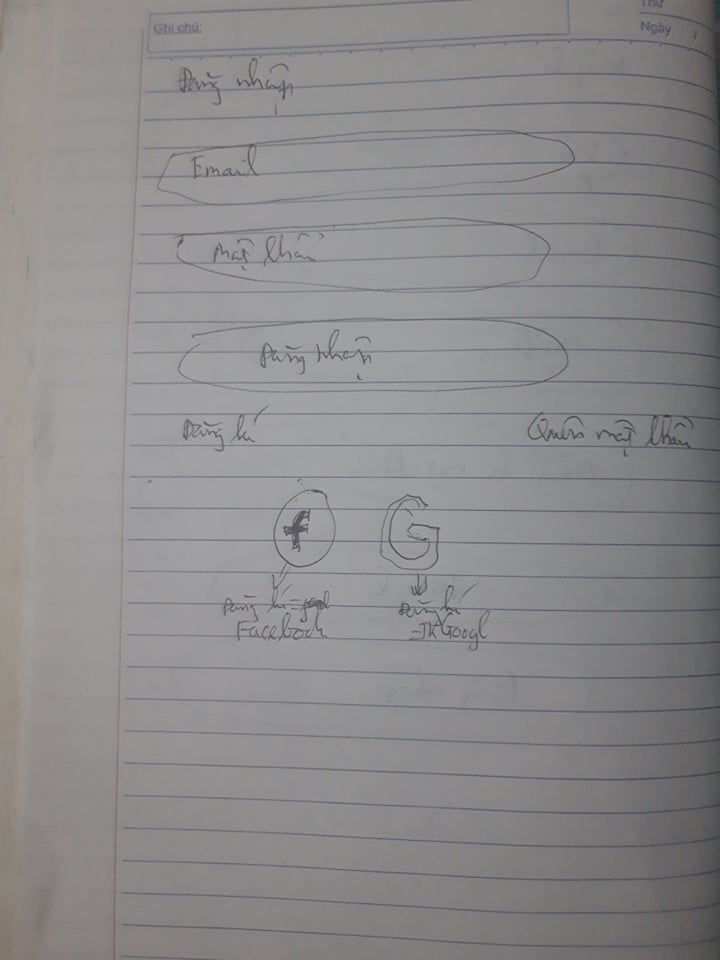 Ghi chú:
Thứ
Ngày
Đăng nhập
Email
mật khẩu
Đăng nhập
Đăng kí
Quên mật khẩu
f G
Đăng kí =
Facebook
Đăng kí
=TK Googl